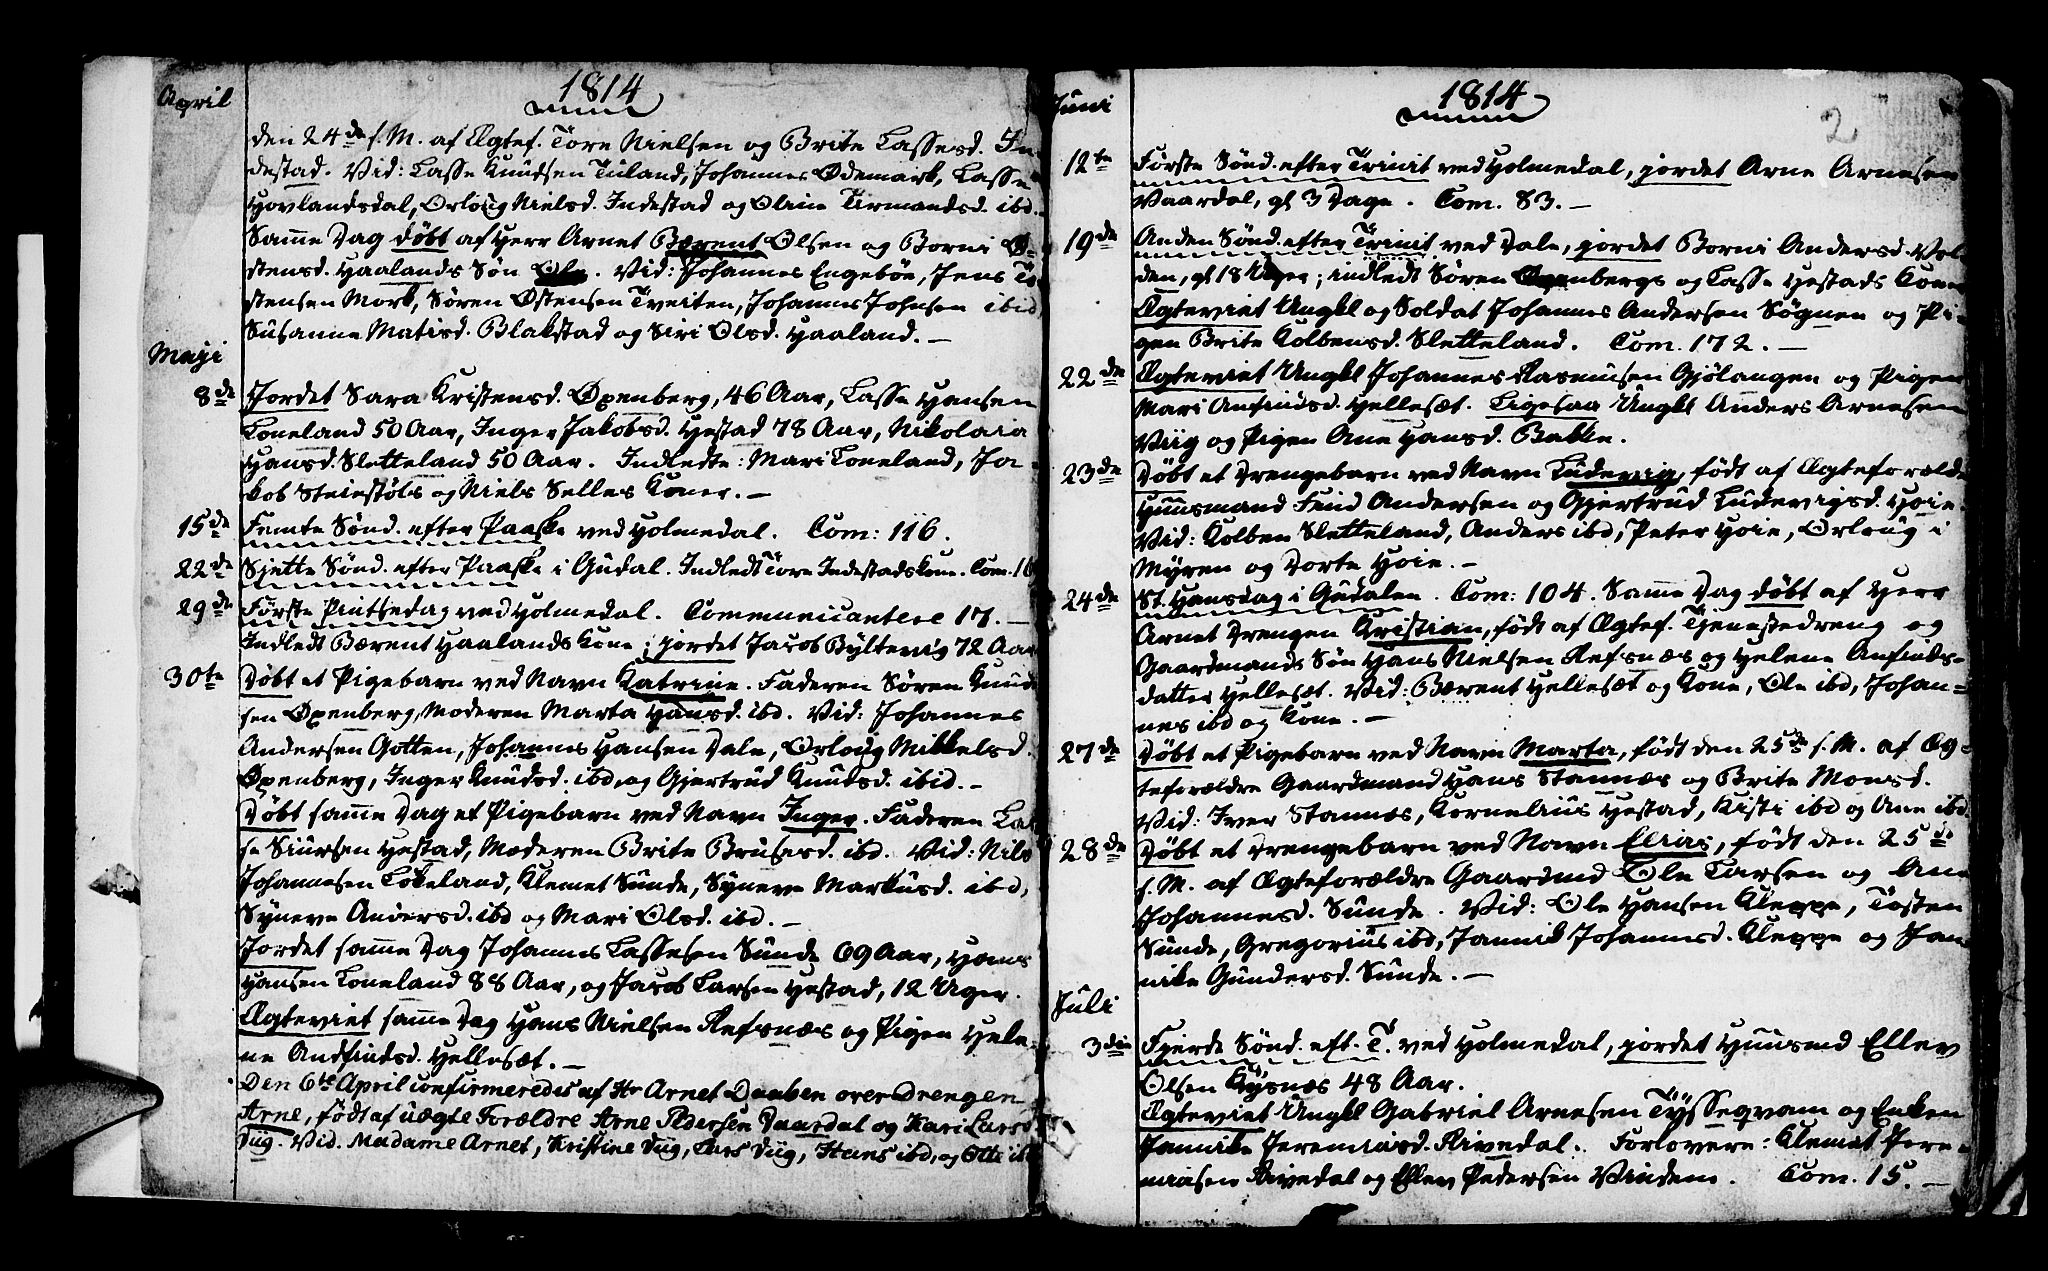 April
1814
den 24de s. M. af Ægtef. Tore Nielsen og Brite Lassesd. In-
destad. Vid: Lasse Knudsen Tuland, Johannes Ødemark, Lasse
Hovlandsdal, Orloug Nielsd. Indestad og Oline Tormondsd. ibd.
Samme Dag døbt af Herr Arnet Bærent Olsen og Borni Ø-
stensd. Haalands Søn Ole. Vid: Johannes Engebøe, Jens To-
stensen Mork, Søren Østensen Tveiten, Johannes Johnsen ibid,
Susanne Matisd. Blakstad og Siri Olsd. Haaland. —
Maji
8de Jordet Sara Kristensd. Øxenberg, 46 Aar, Lasse Hansen
Loneland 50 Aar, Inger Jakobsd. Hestad 78 Aar, Nikolaia
Hansd. Sletteland 50 Aar. Indledte: Mari Loneland, Ja-
kob Steiestøls og Niels Selles Koner. —
15de Femte Sönd. efter Paaske ved Holmedal. Com: 116.
22de Sjette Sönd. efter Paaske i Gudal. Indledt Tore Indestads kone. Com. 16
29de Første Pintsedag ved Holmedal. Communicantere 17. —
Indledt Bærent Haalands Kone; jordet Jacob Byltevig 72 Aar
30te Døbt et Pigebarn ved Navn Katrine. Faderen Søren Knud-
sen Øxenberg, Moderen Marta Hansd. ibd. Vid: Johannes
Andersen Gotten, Johannes Hansen Dale, Orloug Mikkelsd.
Øxenberg, Inger Knudsd. ibd, og Gjertrud Knudsd. ibid. —
Døbt samme Dag et Pigebarn ved Navn Inger. Faderen Las-
se Siursen Hestad, Moderen Brite Brusesd. ibd. Vid: Nils
Johannesen Lokeland, Klemet Sunde, Syneve Markusd. ibd,
Syneve Andersd. ibd og Mari Olsd. ibd. —
Jordet samme Dag Johannes Lassesen Sunde 69 Aar, Hans
Hansen Loneland 88 Aar, og Jacob Larsen Hestad, 12 Uger.
Ægteviet samme Dag Hans Nielsen Refsnæs og Pigen Hele-
ne Andfindsd. Hellesæt. —
Den 6te April confirmeredes af Hr Arnet Daaben over Drengen
Arne, født af uægte Forældre Arne Pedersen Vaardal og Kari Larsd
Viig. Vid. Madame Arnet, Kristine Viig, Lars Viig, Hans ibd, og Otte ibd
Juni
1814
2
12te Første Sönd. efter Trinit ved Holmedal, jordet Arne Arnesen
Vaardal, gl 3 Dage. Com. 83. —
19de Anden Sönd. efter Trinit ved Dale, jordet Borni Andersd. Vol-
den, gl 18 Uger; indledt Søren Øxenbergs og Lasse Hestads Koner
Ægteviet Ungkl og Soldat Johannes Andersen Sögnen og Pi-
gen Brite Kolbensd. Sletteland. Com. 172. —
22de Ægteviet Ungkl Johannes Rasmusen Gjølangen og Pigen
Mari Anfindsd. Hellesæt. Ligesaa Ungkl Anders Arnesen
Viig og Pigen Ane Hansd. Bakke.
23de Døbt et Drengebarn ved Navn Ludevig, født af Ægteforældre
Huusmand Find Andersen og Gjertrud Ludevigsd. Hoie.
Vid: Kolben Sletteland, Anders ibd, Peter Hoie, Orloug i
Myren og Dorte Hoie. —
24de St. Hansdag i Gudalen. Com: 104. Samme Dag døbt af Herr
Arnet Drengen Kristian, født af Ægtef. Tjenestedreng og
Gaardmands Søn Hans Nielsen Refsnæs og Helene Anfinds-
datter Hellesæt. Vid: Bærent Hellesæt og Kone, Ole ibd, Johan-
nes ibd og Kone. —
27de Døbt et Pigebarn ved Navn Marta, født den 25de s. M. af Æg-
teforældre Gaardmand Hans Stannæs og Brite Monsd.
Vid: Iver Stannæs, Kornelius Hestad, Kisti ibd og Ane ibd.
28de Døbt et Drengebarn ved Navn Elias, født den 25de
s. M. af Ægteforældre Gaardmd Ole Larsen og Ane
Johannesd. Sunde. Vid: Ole Hansen Kleppe, Tosten
Sunde, Gregorius ibd, Jannik Johannesd. Kleppe og Jan-
nike Gundersd. Sunde. —
Juli
3die Fjerde Sönd. eft. T. ved Holmedal, jordet Huusmd Ellev
Olsen Kysnæs 48 Aar.
Ægteviet Ungkl Gabriel Arnesen Tysseqvam og Enken
Jannike Jeremiasd. Rivedal. Forlovere: Klemet Jere-
miasen Rivedal og Ellev Pedersen Vindem. Com. 15. —